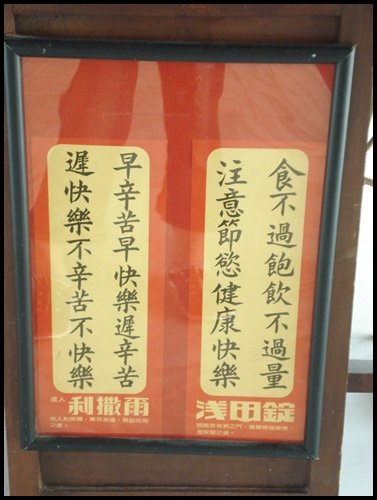 食不過飽飲不過量
注意節慾健康快樂
浅田錠
早辛苦早快樂遲辛苦
遲快樂不辛苦不快樂
成人 利撒爾
成人利撒爾 無副作用
之虞。